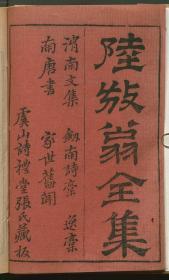 陸放翁全集
渭南文集　劔南詩稾　逸稾
南唐書　家世舊聞
虞山詩禮堂張氏藏板